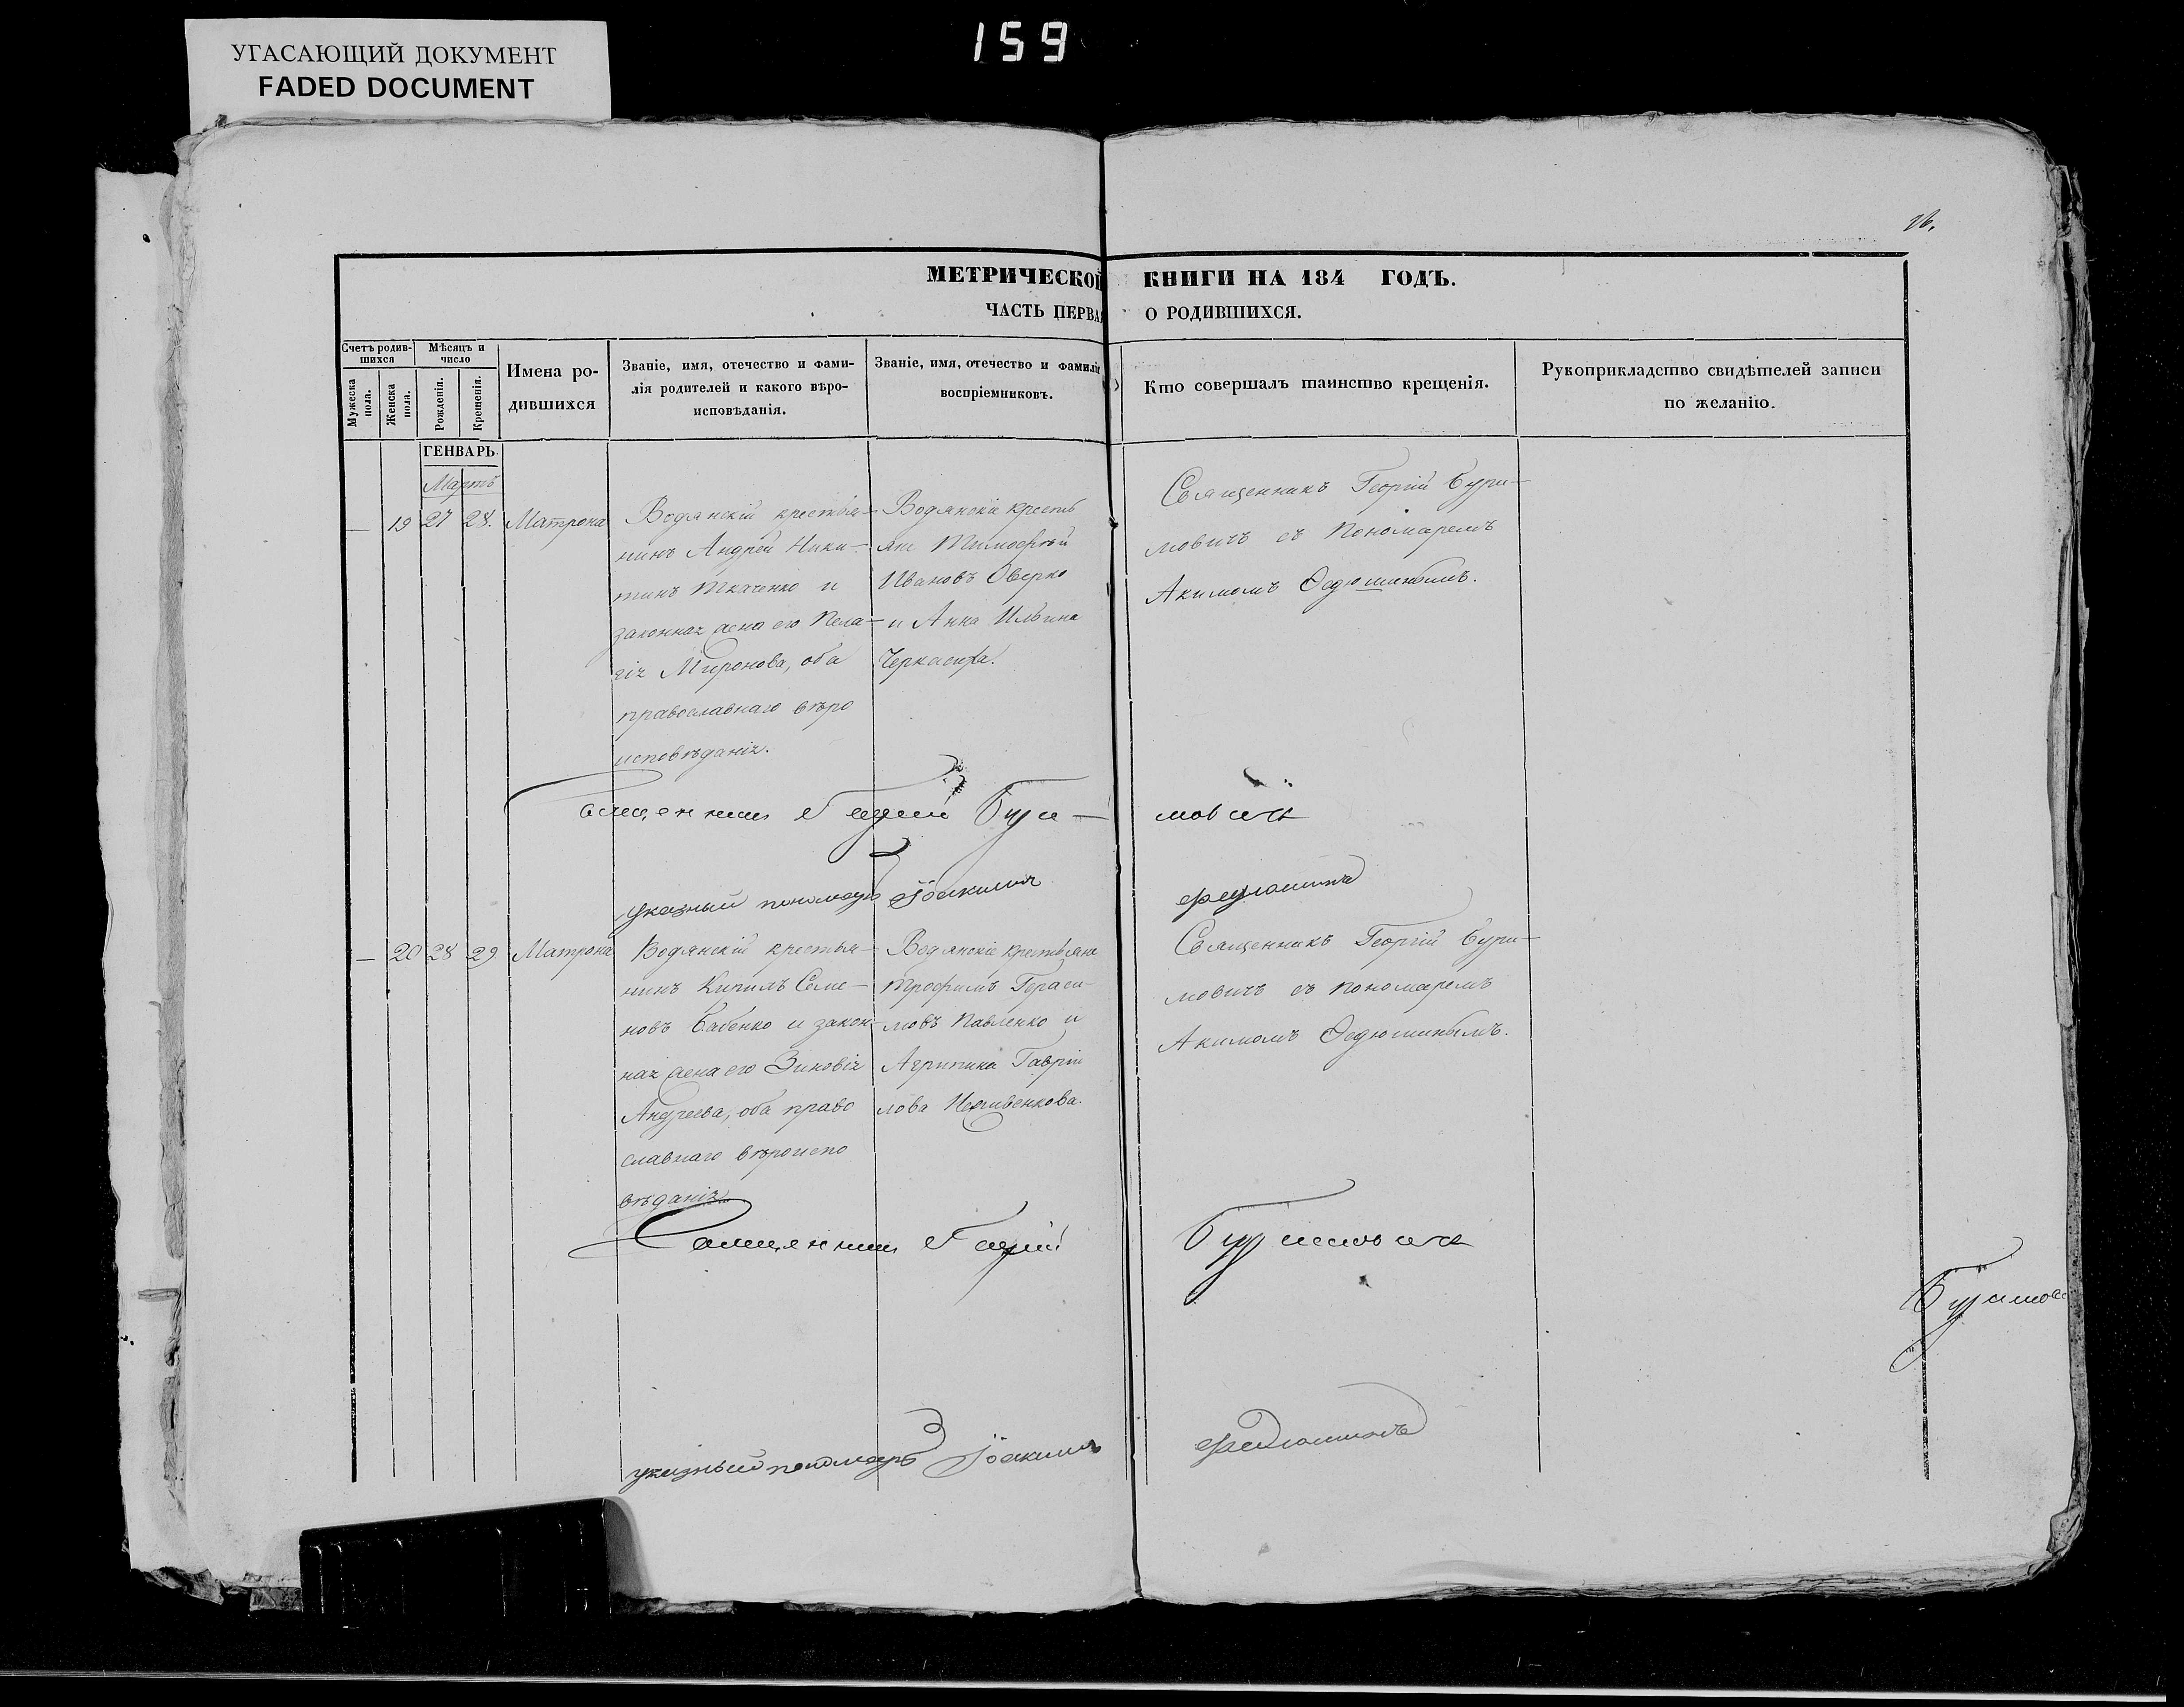 УГАСАЮЩИЙ ДОКУМЕНТ
FADED DOCUMENT
159
МЕТРИЧЕСКОЙ КНИГИ НА 184 ГОДЪ.
ЧАСТЬ ПЕРВАЯ О РОДИВШИХСЯ.
Счетъ родив-
шихся
Мужеска
пола.
Женска
пола.
Мѣсяцъ и
число
Рожденія.
Крещенія.
Имена ро-
дившихся
Званіе, имя, отечество и фами-
лія родителей и какого вѣро-
исповѣданія.
Званіе, имя, отечество и фамилія
воспріемниковъ.
Кто совершалъ таинство крещенія.
Рукоприкладство свидѣтелей записи
по желанію.
ГЕНВАРЬ.
Мартъ
— 19 27 28. Матрона
Водянскій крестья-
нинъ Андрей Ники-
тинъ Ткаченко и
законная жена его Пела-
гія Миронова, оба
православнаго вѣро
исповѣданія.
Водянскіе кресть
яне Тимофѣй
Ивановъ Оверко
и Анна Ильина
Священникъ Георгій Бури-
мовичъ съ Пономаремъ
Акимомъ Ѳедюшинымъ.
Священникъ Георгій Бури-мовичъ
указный пономарь Іоакимъ Федюшинъ
— 20 28 29 Матрона
Водянскій крестья-
нинъ Кирилъ Семе-
новъ Бабенко и закон-
ная жена его Зиновія
Андреева, оба право
славнаго вѣроиспо
вѣданія.
Водянскіе крестьяне
Трофимъ Гераси-
мовъ Павленко и
Агрипина Гаврі
лова
Священникъ Георгій Бури-
мовичъ съ Пономаремъ
Акимомъ Ѳедюшинымъ.
Священникъ Георгій Буримовичъ
указный пономарь Іоакимъ Федюшинъ
Буримов